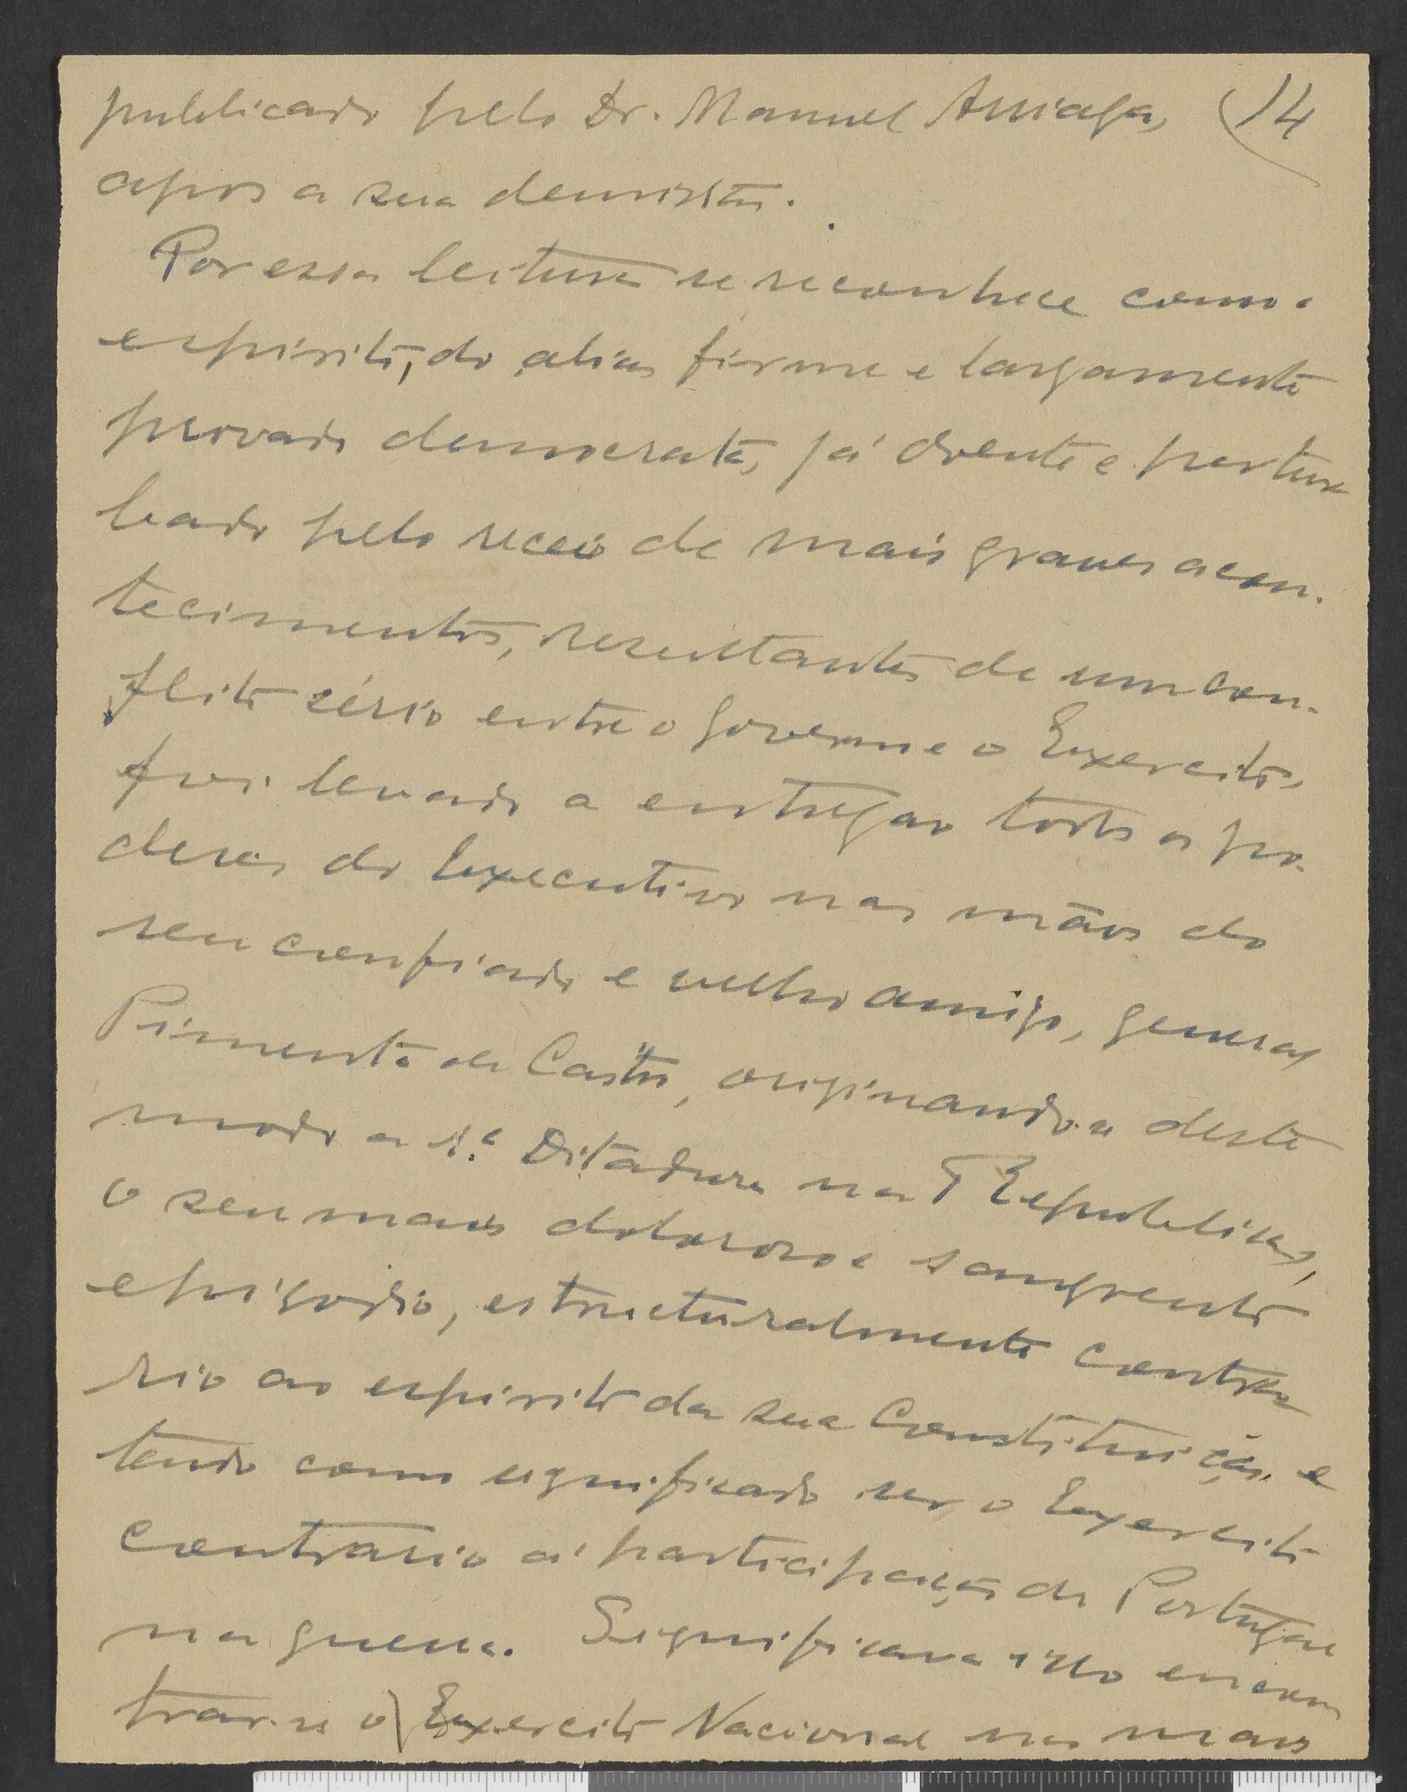 publicado pelo Dr. Manuel Arriaga, 14
apos a sua demissão.
Por essa leitura se reconhece como o
espirito, do alias firme e largamente
provado democrata, já doente e pertur
bado pelo receio de mais graves acon-
tecimentos, resultantes de um con-
flito sério entre o Governo e o Exercito,
foi levado a entregar todos os po-
deres do Executivo nas mãos do
seu confiado e velho amigo, general
Pimenta de Castro, originando-se deste
modo a 1.ª Ditadura na Republica,
o seu mais doloroso e sangrento
episodio, estructuralmente contra
rio ao espirito da sua Constituição e
tendo como significado ser o Exercito
contrario á participação de Portugal
na guerra. Significava isto encon
trar-se o Exercito Nacional nas mãos